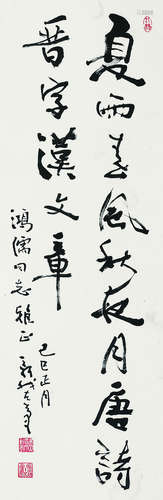 夏雨春风秋夜月唐詩
晋字漢文章
鴻儒同志雅正
己巳正月